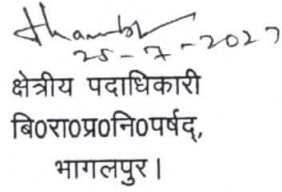 25-7-2023
क्षेत्रीय पदाधिकारी
बि0रा0प्र0नि0पर्षद्,
भागलपुर।